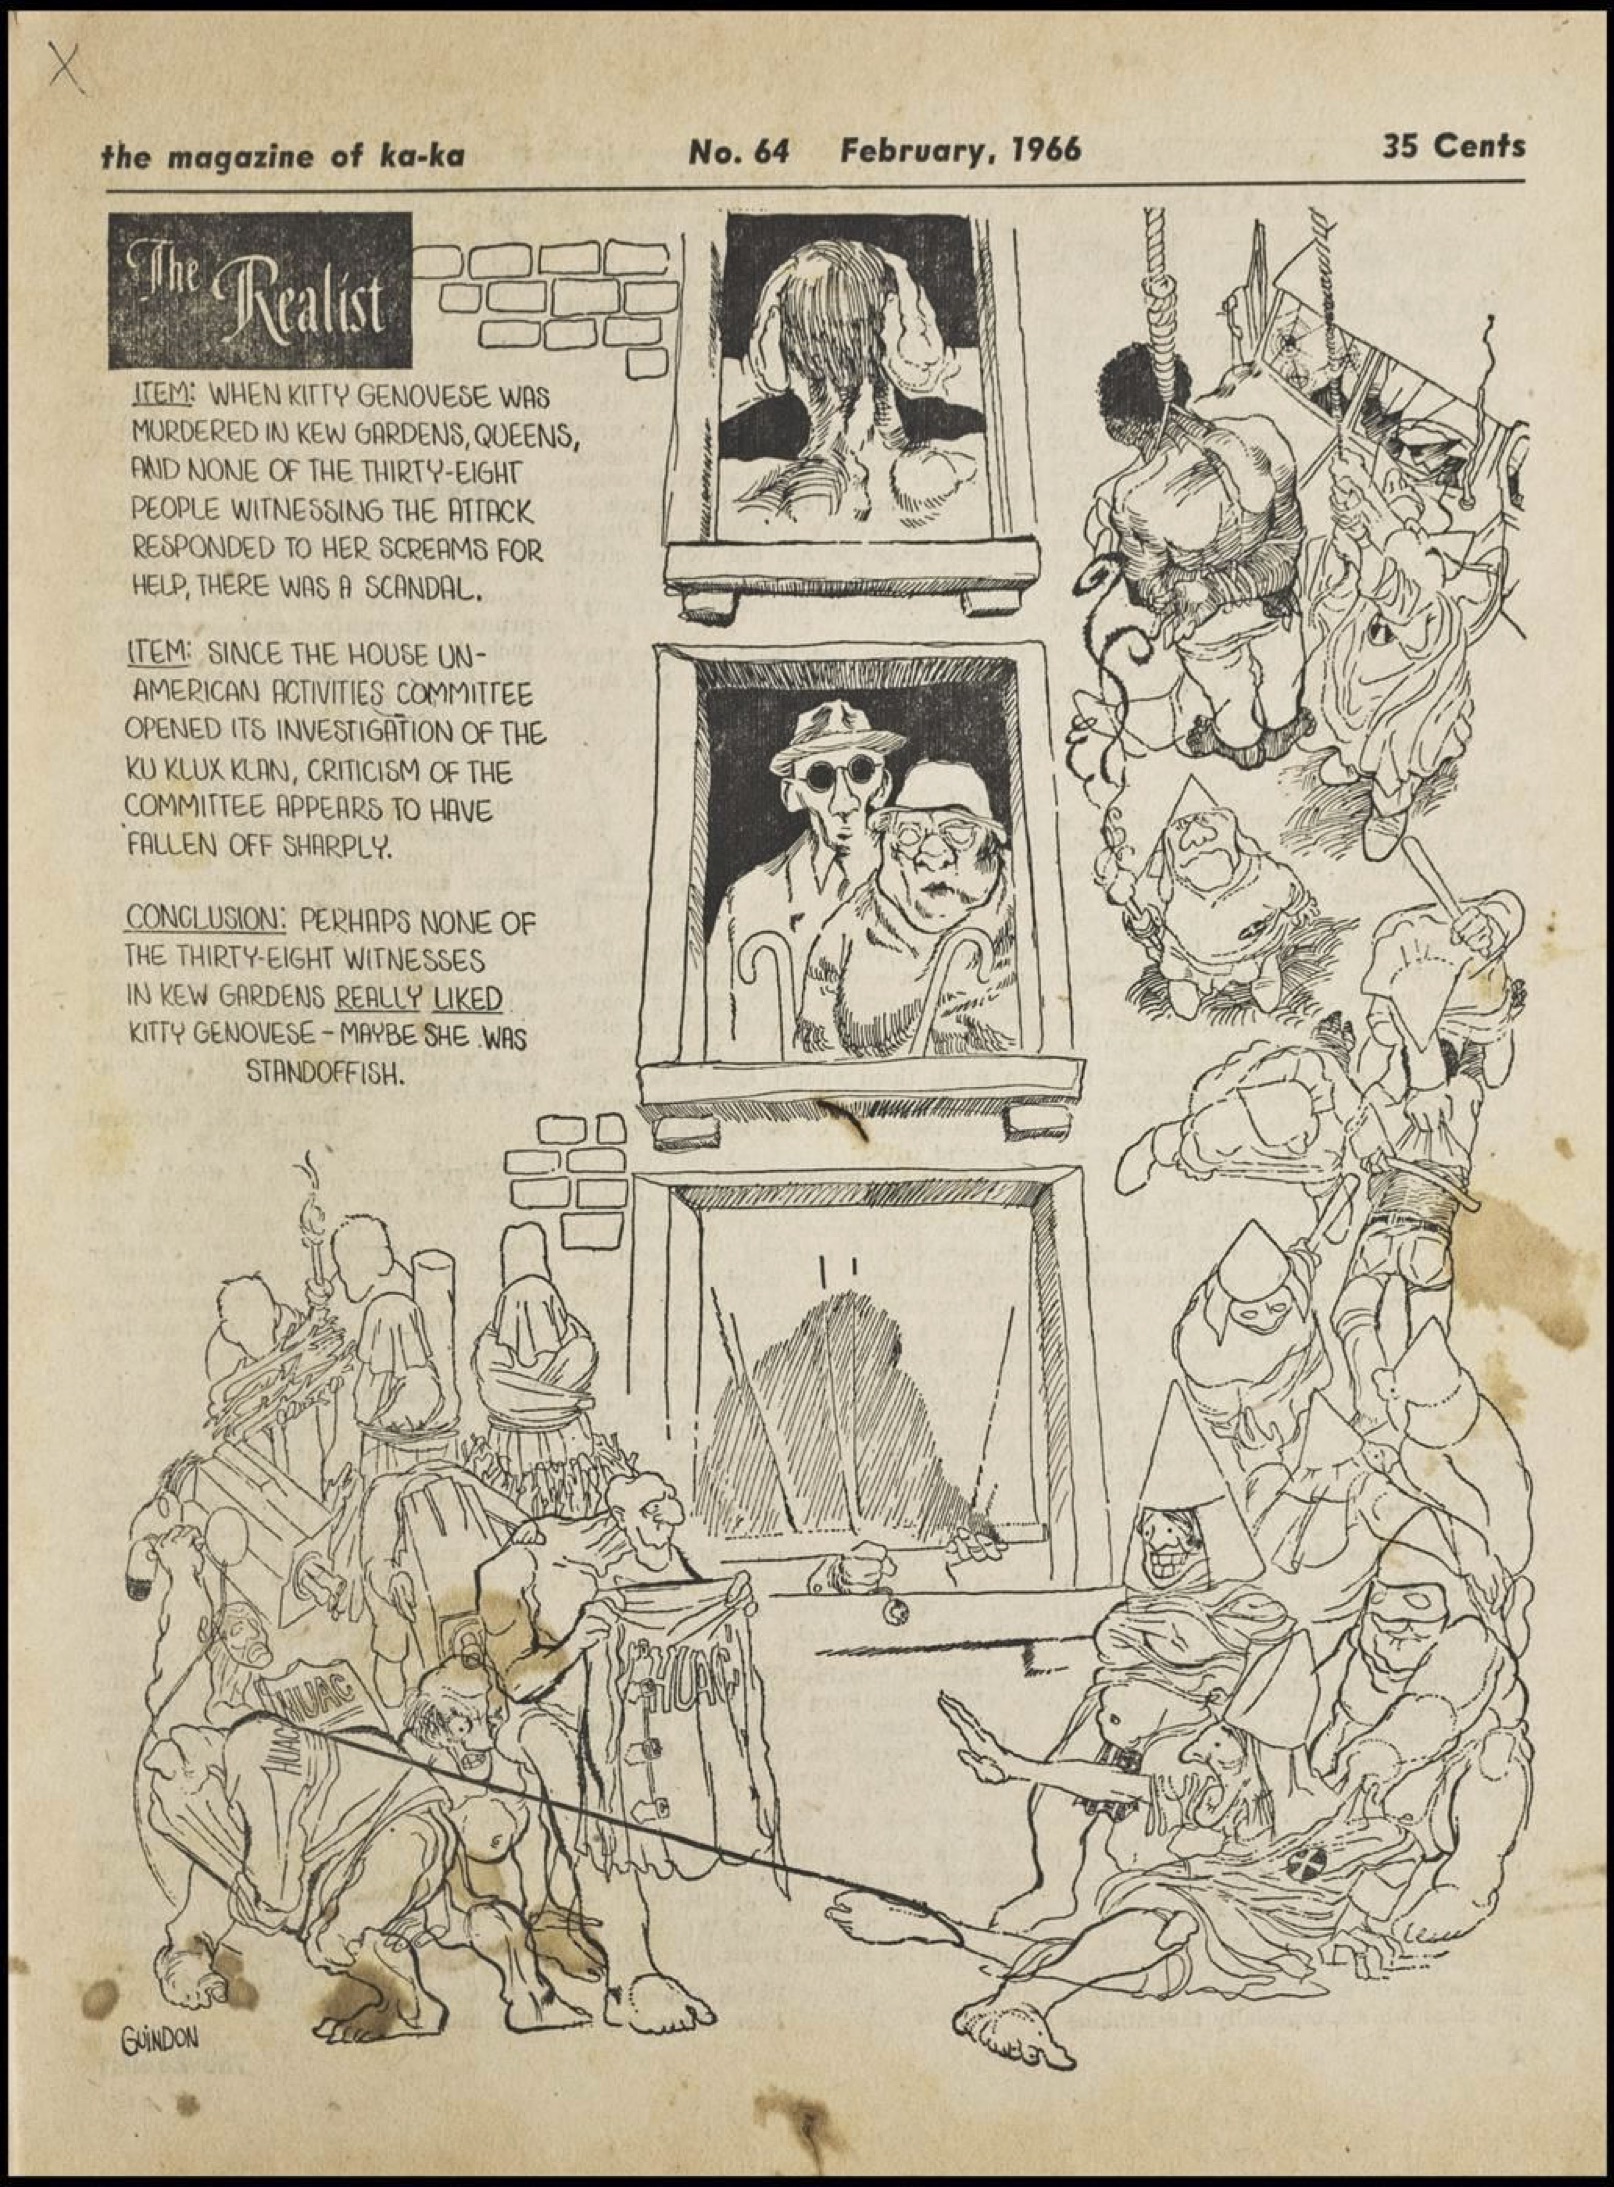 X
the magazine of ka-ka No. 64 February, 1966 35 Cents
The Realist
ITEM: WHEN KITTY GENOVESE WAS
MURDERED IN KEW GARDENS, QUEENS,
AND NONE OF THE THIRTY-EIGHT
PEOPLE WITNESSING THE ATTACK
RESPONDED TO HER SCREAMS FOR
HELP, THERE WAS A SCANDAL.
ITEM: SINCE THE HOUSE UN-
AMERICAN ACTIVITIES COMMITTEE
OPENED ITS INVESTIGATION OF THE
KU KLUX KLAN, CRITICISM OF THE
COMMITTEE APPEARS TO HAVE
FALLEN OFF SHARPLY.
CONCLUSION: PERHAPS NONE OF
THE THIRTY-EIGHT WITNESSES
IN KEW GARDENS REALLY LIKED
KITTY GENOVESE - MAYBE SHE WAS
STANDOFFISH.
HUAC
HUAC
HUAC
GUINDON